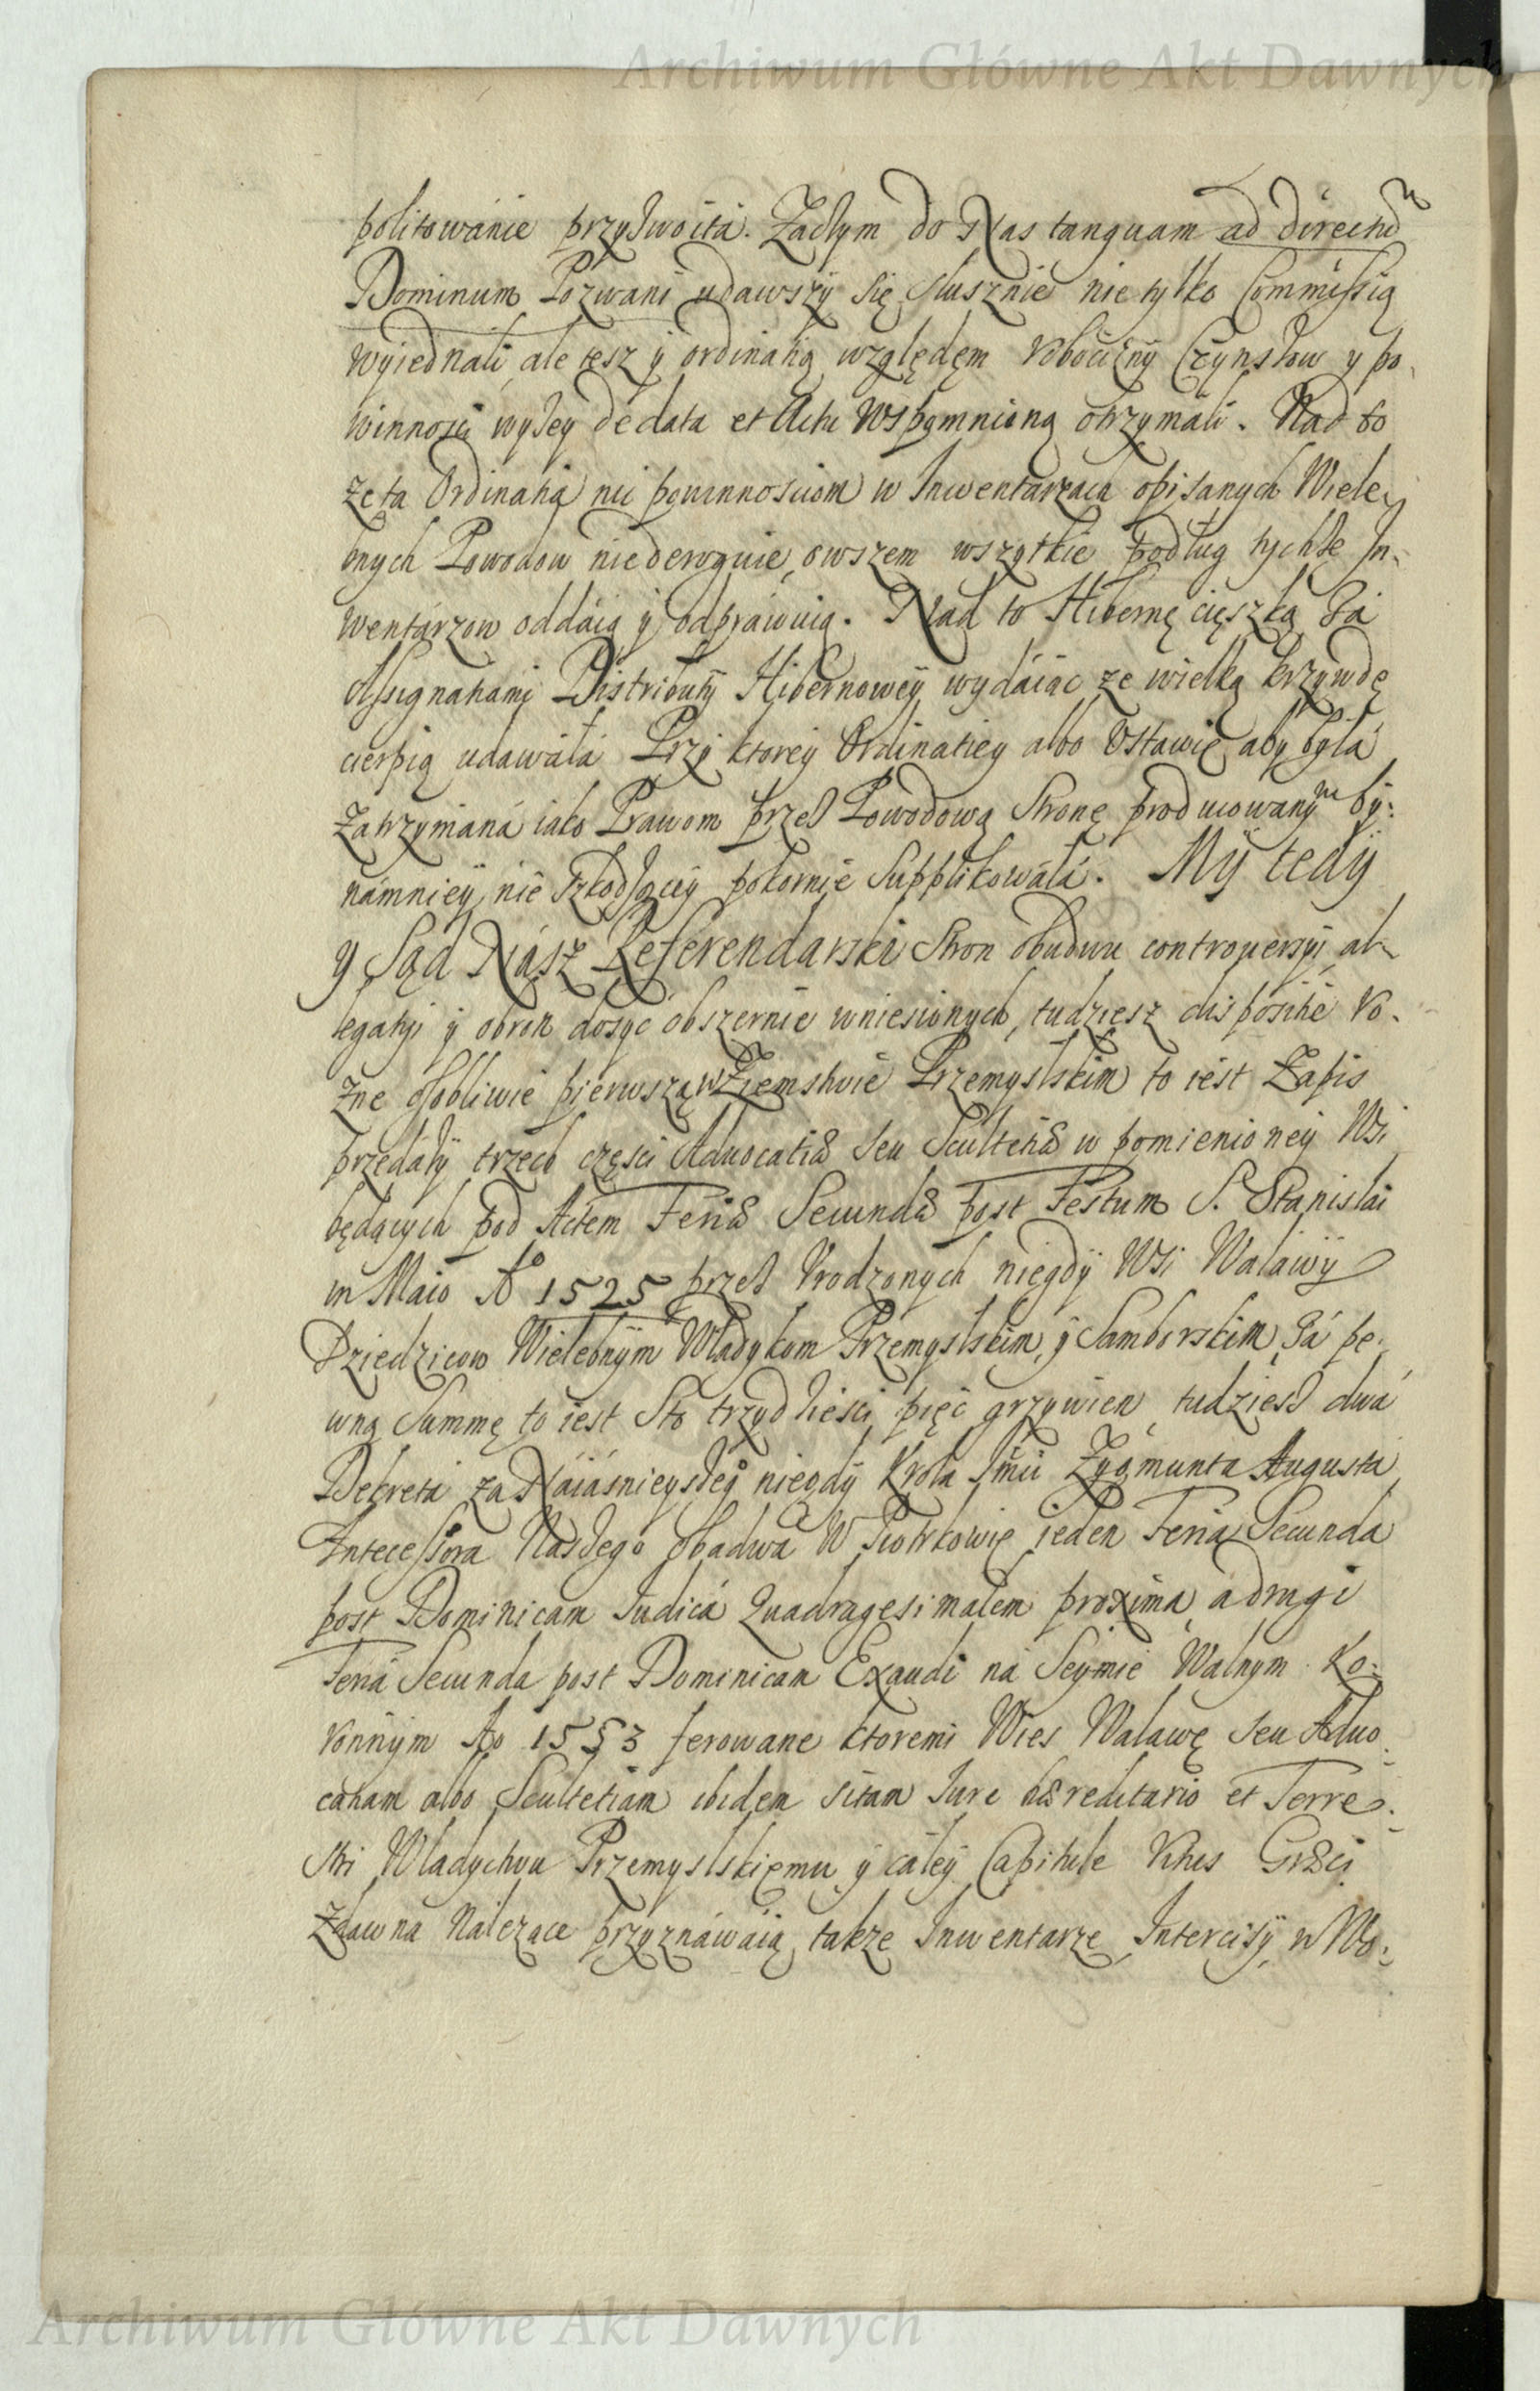 Archiwum Główne Akt Dawnych
politowánie przyzwoita. Zaczym do Nas tanquam ad directũ
Dominum Pozwani udawszy się słusznie nie tylko Commissią
wyiednali ale tesz y ordinatią względęm Robocizny Czynszow y po-
winnosci wyżey de data et Actu wspomnioną otrzymáli. Nad to
że ta Ordinatia nic powinnosciom w Inwentarzach opisanych Wiele-
bnych Powodow niederoguie, owszem wszytkie podług tychże In-
wentárzow oddáią y odpráwuią. Nad to Hibernę cięszką za
Assignatiami Distributy Hibernowey wydáiąc że wielką krzywdę
cierpią udawáła Przy ktorey Ordinatiey albo Ustawie aby była
Zatrzymána iako Prawom przez Powodową Stronę produiowanym by-
námniey nie szkodzącey pokornie Supplikowáła. My tedy
y Sąd Nász Referendarski Stron obudwu controversyi al-
legatyi y obron dosyć obszernie wniesionych, tudziesz dispositie Ro-
zne osobliwie pierwszą w Ziemstwie Przemyslskim to iest Zapis
przedáży trzech częsci Advocatiæ seu Scultetiæ w pomienioney Wsi
będących pod Actem Feriæ Secundæ post Festum S. Stanislai
in Maio Ao 1525 przez Urodzonych niegdy Wsi Walawy
Dziedzicow Wielebnym Władykom Przemyslskim y Samborskim zá pe-
wną Summę to iest Sto trzydzieści pięć grzywien, tudziesz dwá
Decreta za Náiásnieyszego niegdy Krola Jmci Zygmunta Augusta
Antecessora Naszego obadwá w Piotrkowie jeden Feria Secunda
post Dominicam Judicá Quadragesimalem proxima, a drugi
Feria Secunda post Dominicam Exaudi ná Seymie Walnym Ko-
ronnym Ao 1553 ferowane ktoremi Wies Walawę seu Advo-
catiam albo Scultetiam ibidem sitam Jure hæreditario et Terre-
stri Władychvu Przemyslskiemu y cáłey Capitule Ritus Græci
Zdawna Należące przyznáwáią, także Inwentarze Intercisy w Wo-
Archiwum Główne Akt Dawnych